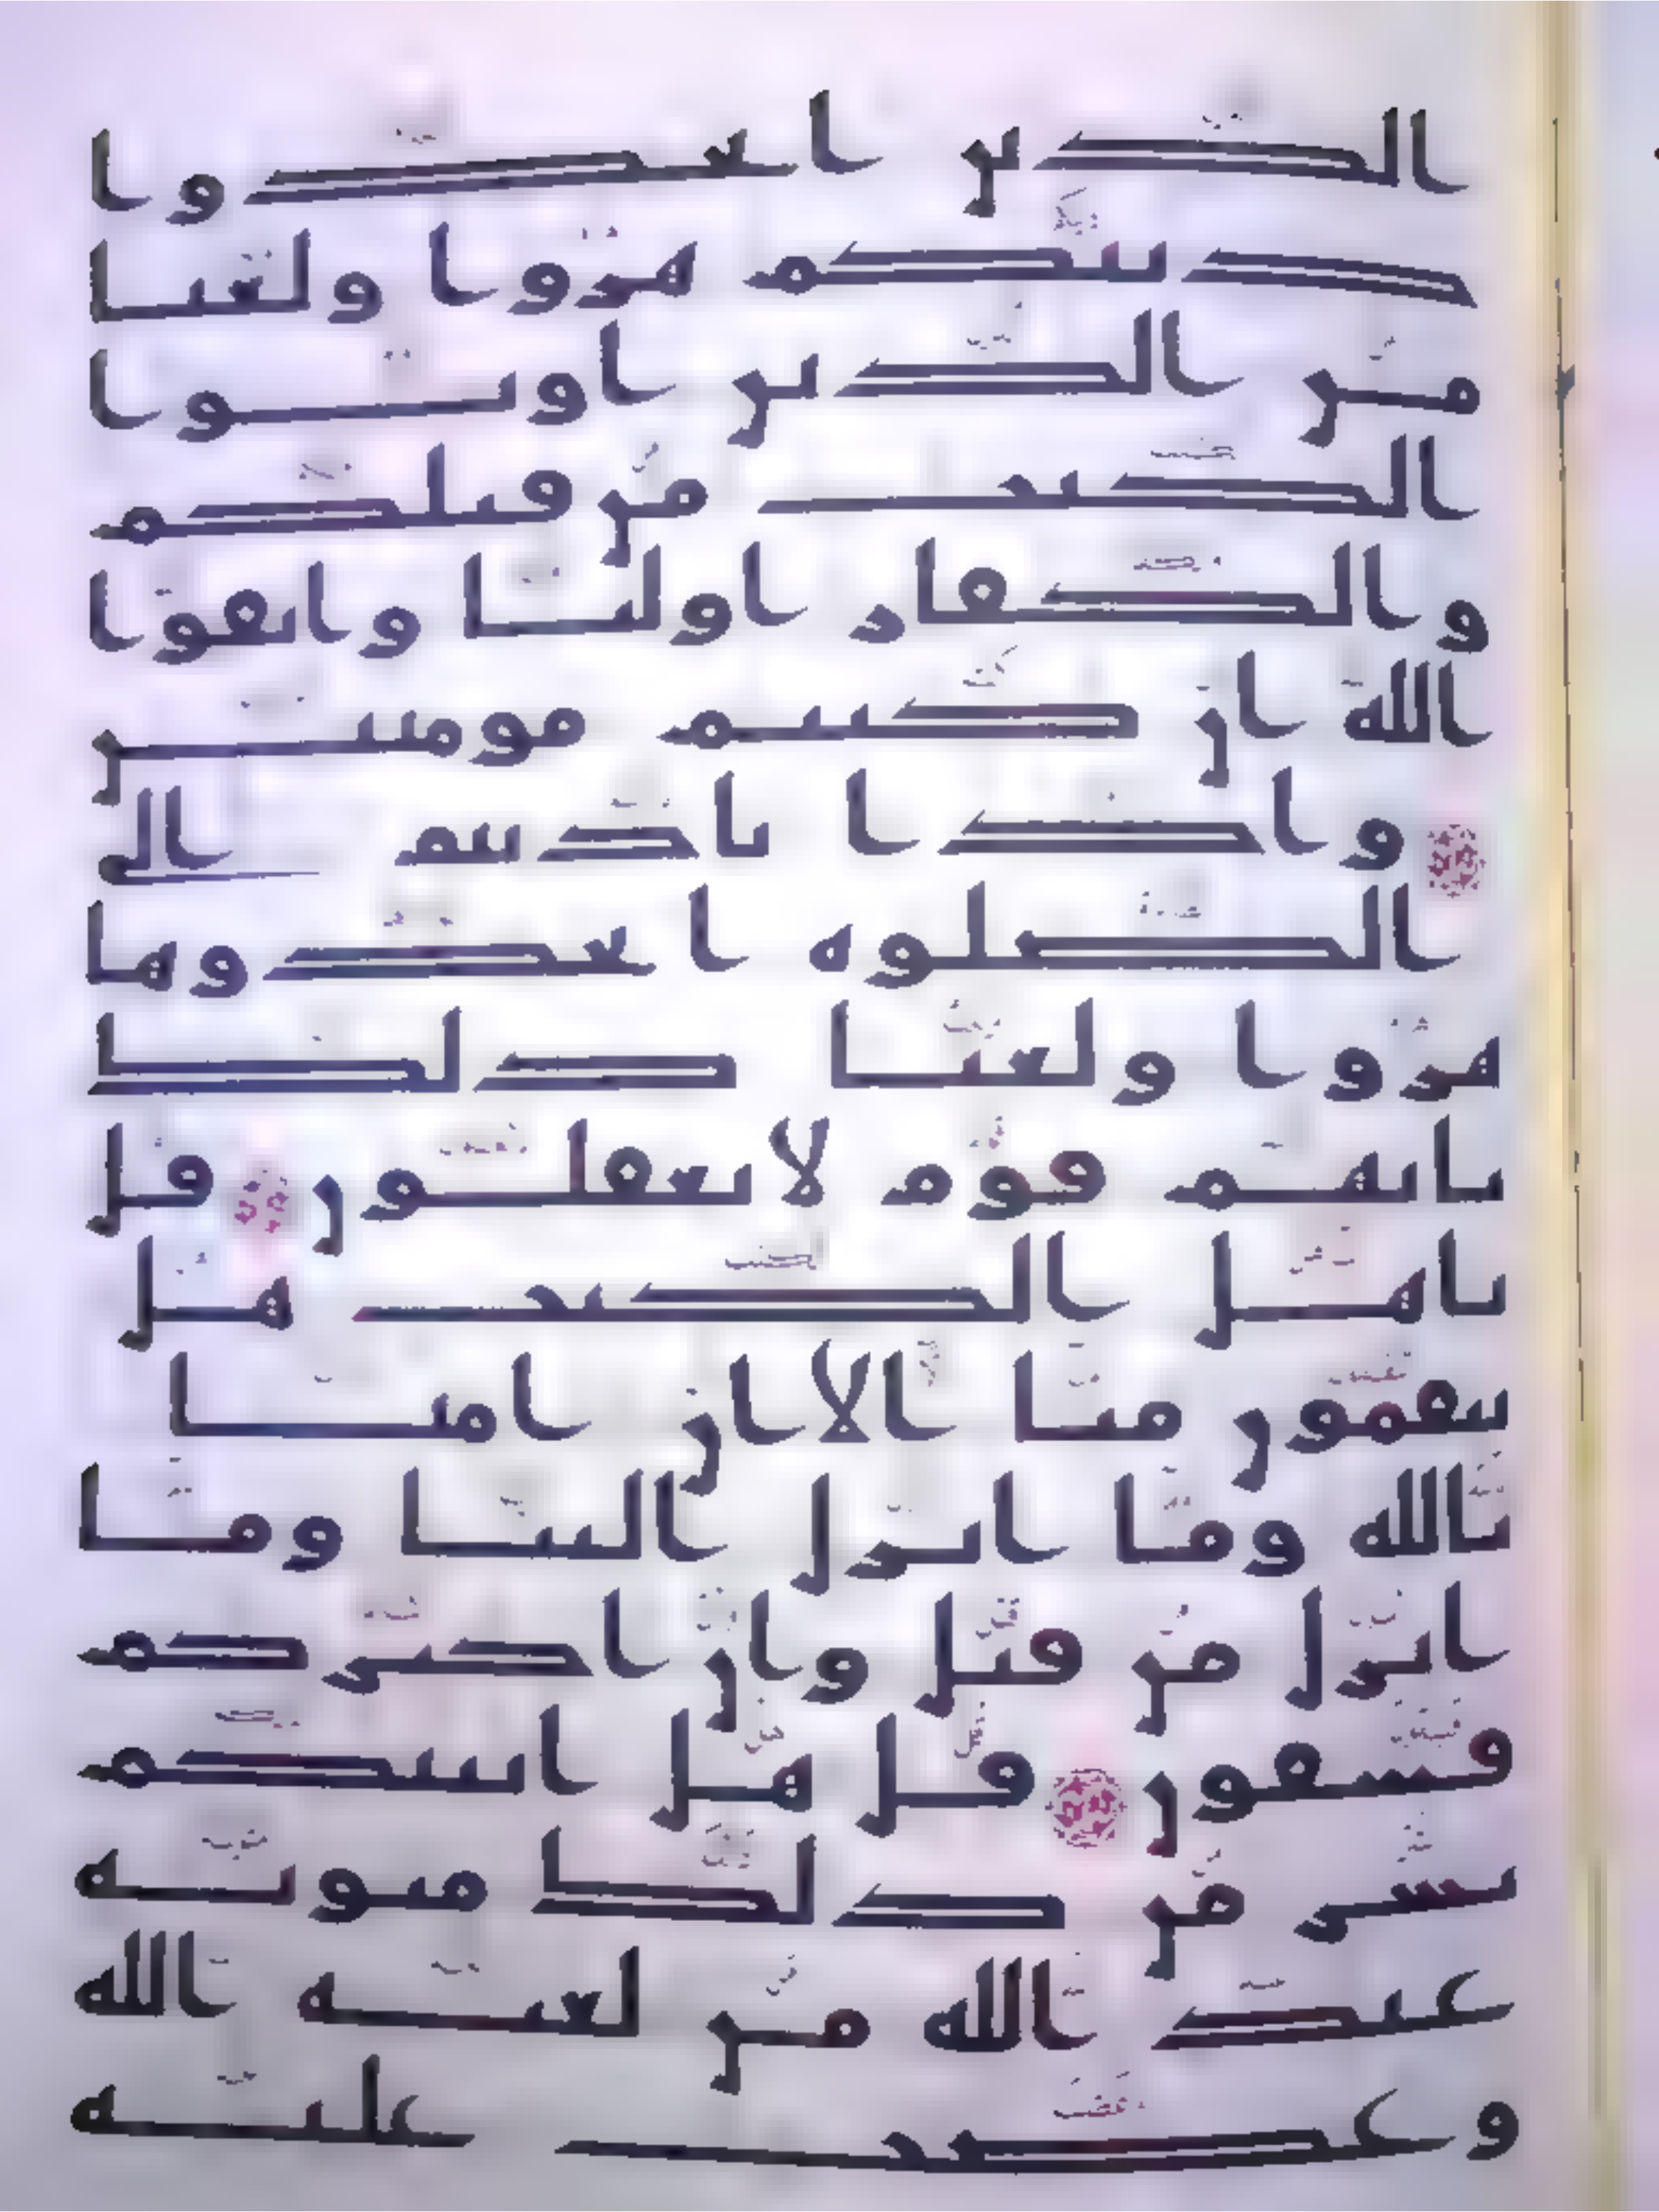 الذين اتخذوا
دينكم هزوا ولعبا
من الذين اوتوا
الكتب من قبلكم
والكفار اوليا واتقوا
الله ان كنتم مومنين
واذا ناديتم الى
الصلوه اتخذوها
هزوا ولعبا ذلك
بانهم قوم لا يعقلون قل
ياهل الكتب هل
تنقمون منا الا ان امنا
بالله وما انزل الينا وما
انزل من قبل وان اكثركم
فسقون قل هل انبئكم
بشر من ذلك مثوبه
عند الله من لعنه الله
وغضب عليه